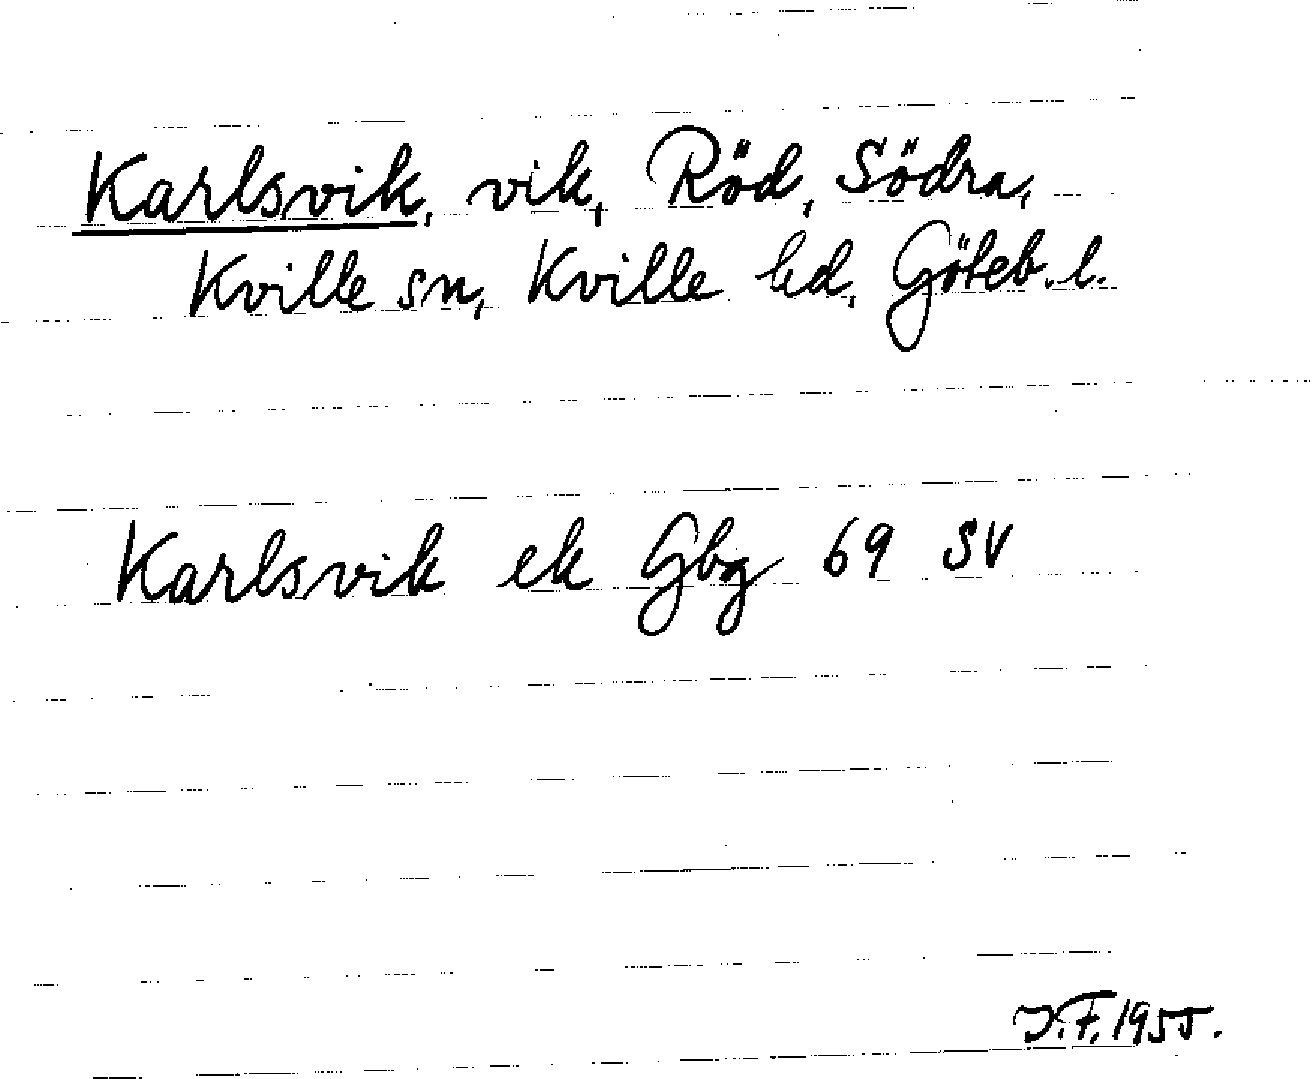 Karlsvik, vik, Röd, Södra,
Kville sn, Kville hd, Göteb. l.
Karlsvik ek Gbg 69 SV
J.F. 1955.